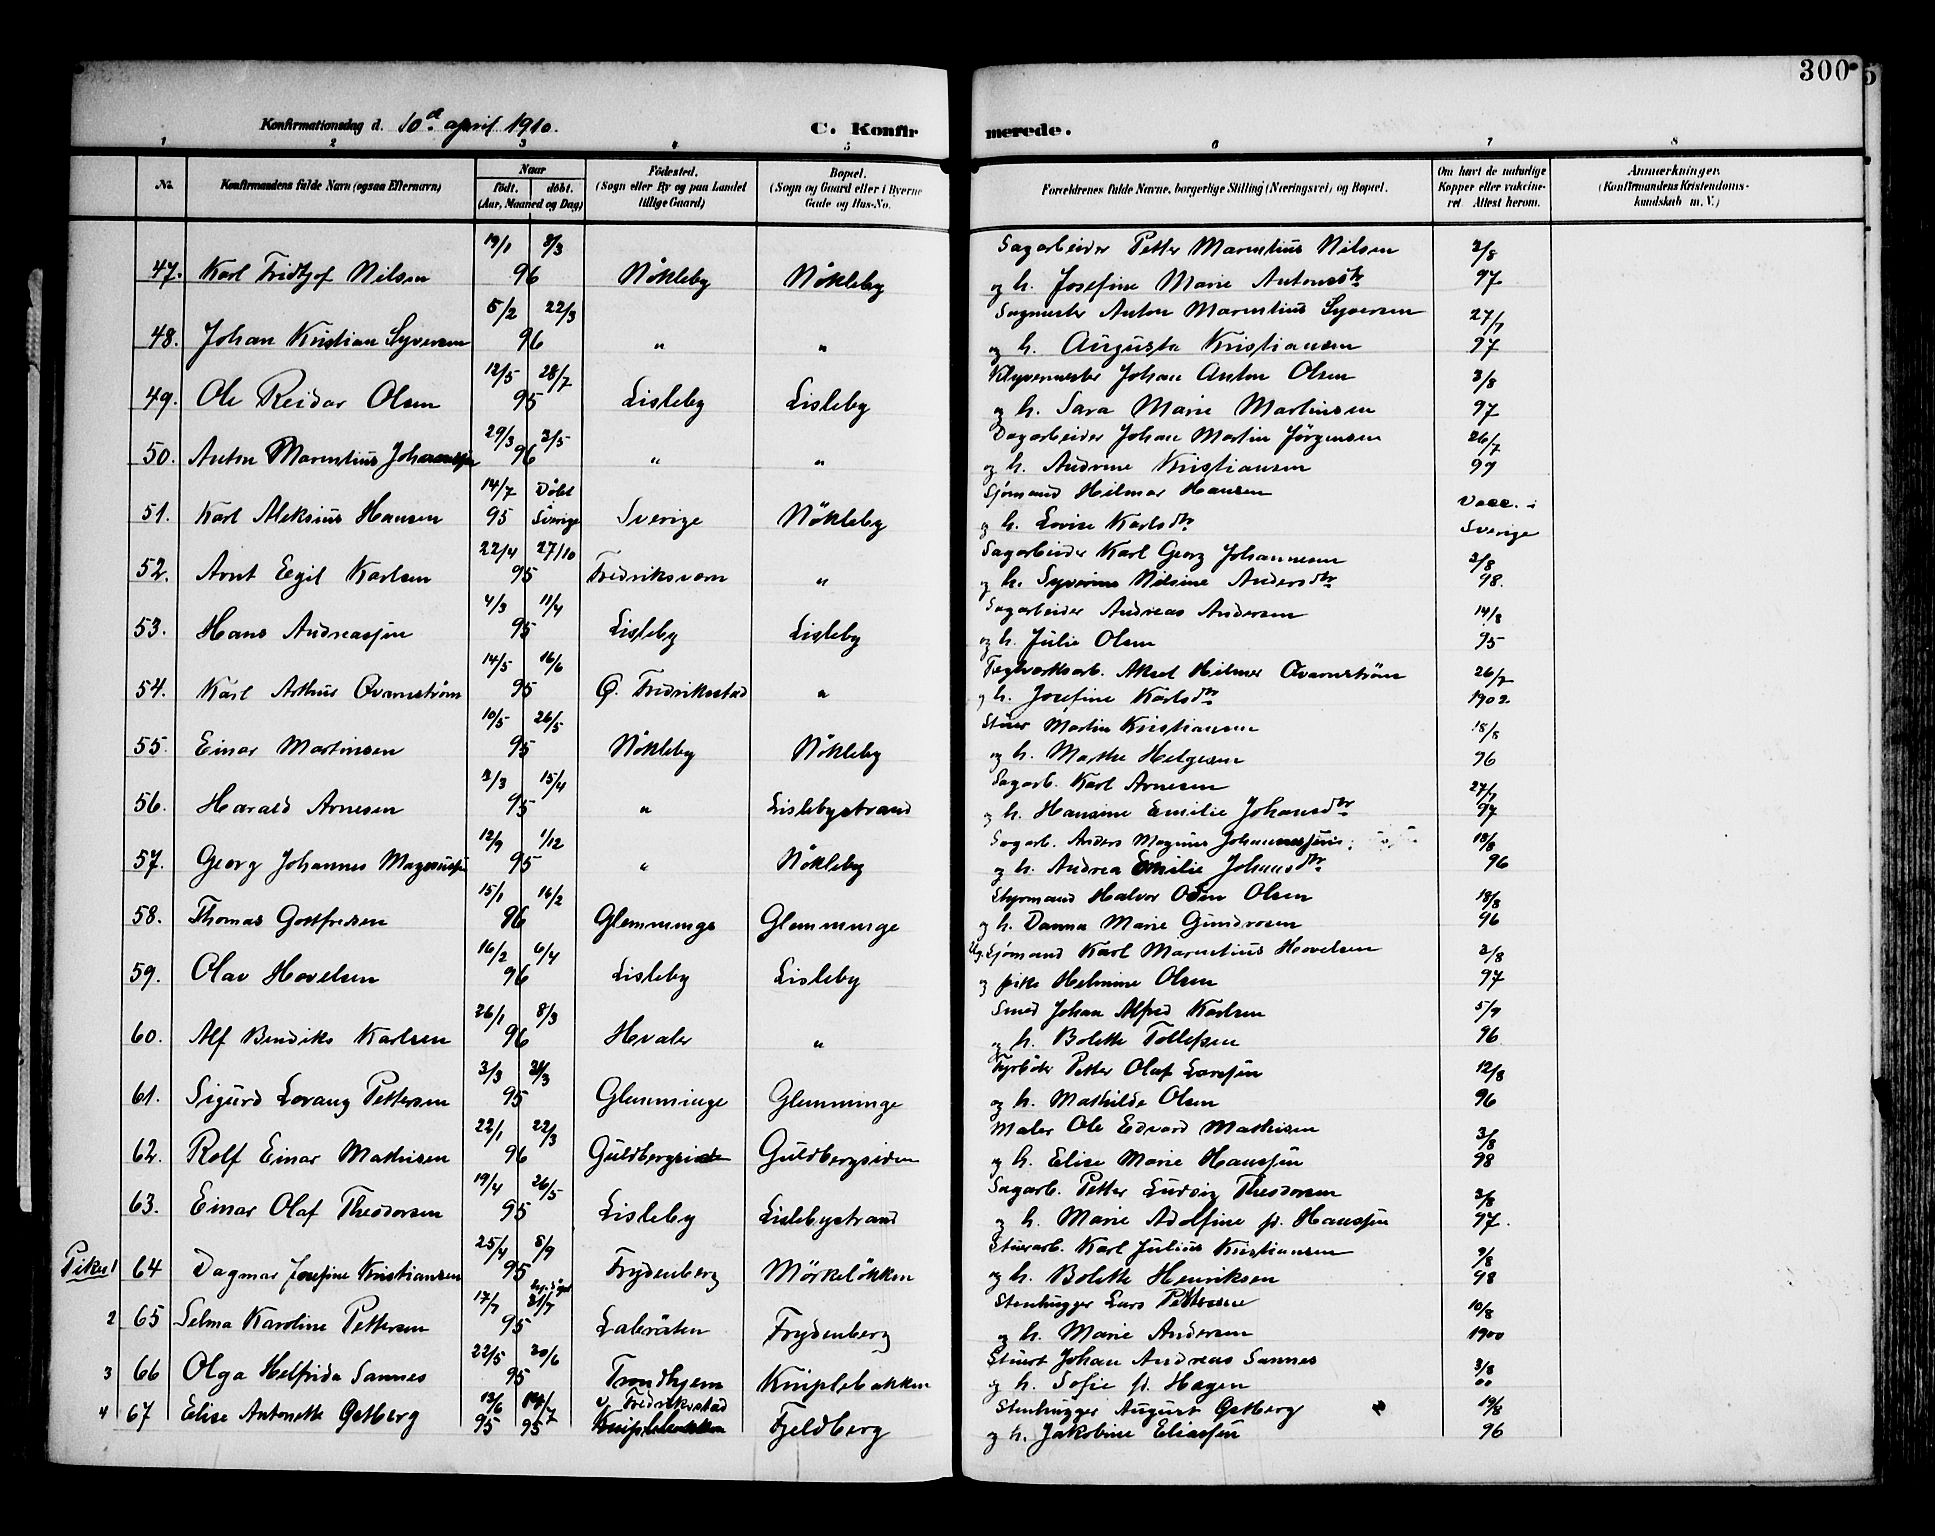 300
5
Konfirmationsdag d. 10de april 1910.
C. Konfirmerede.
1 2 3 4 5 6 7 8
No.
Konfirmandens fulde Navn (ogsaa Efternavn)
Naar
født. døbt.
(Aar, Maaned og Dag)
Fødested.
(Sogn eller By og paa Landet
tillige Gaard)
Bopæl.
(Sogn og Gaard eller i Byerne
Gade og Hus-No.
Forældrenes fulde Navne, borgerlige Stilling (Næringsvei) og Bopæl.
Om havt de naturlige
Kopper eller vakcine-
ret Attest herom.
Anmærkninger.
(Konfirmandens Kristendoms-
kundskab m. V.)
19/1 8/3 Sagarbeider Petter Marentius Nilsen 2/8
47. Karl Fridtjof Nilsen 96 Nökleby Nökleby og h. Josefine Marie Antonsdtr 97
5/2 22/3 Sagmester Anton Marentius Syversen 27/7
48. Johan Kristian Syversen 96 " " og h. Augusta Kristiansen 97
12/5 28/7 Klyvemester Johan Anton Olsen 3/8
49. Ole Reidar Olsen 95 Lisleby Lisleby og h. Sara Marie Martinsen 97
29/3 3/5 Sagarbeider Johan Martin Jörgensen 26/7
50. Anton Marentius Johannssen 96 " " og h. Andrine Kristiansen 97
14/7 Döbt Sjömand Hilmar Hansen Vacc. i
51. Karl Aleksius Hansen 95 Sverige Sverige Nökleby og h. Lovise Karlsdtr Sverige
22/4 27/10 Sagarbeider Karl Georg Johannesen 2/8
52. Arnt Egil Karlsen 95 Fredriksvern " og h. Syverine Nilsine Andersdtr 98.
4/3 11/4 Sagarbeider Andreas Andersen 14/8
53. Hans Andreassen 95 Lisleby Lisleby og h. Julie Olsen 95
14/5 16/6 Teglverksarb. Aksel Hilmer Qvarnström 26/7
54. Karl Arthur Qvarnström 95 Ö. Fredriksstad " og h. Josefine Karlsdtr 1902
10/5 26/5 Stuer Martin Kristiansen 18/8
55. Einar Martinsen 95 Nökleby Nökleby og h. Marthe Helgesen 96
3/3 15/4 Sagarb. Karl Arnesen 27/7
56. Harald Arnesen 95 " Lislebystrand og h. Hansine Emilie Johansdtr 97
12/9 1/12 Sagarb. Anders Magnus Johannessen 18/8
57. Georg Johannes Magnussen 95 " Nökleby og h. Andrea Emilie Johansdtr 96
15/1 16/2 Styrmand Halvor Olsen 18/8
58. Thomas Gottfredsen 96 Glemminge Glemminge og h. Danna Marie Gundrosen 96
16/2 6/4 Ug. Sjömand Karl Marentius Hovelsen 2/8
59. Olav Hovelsen 96 Lisleby Lisleby og pike Helmine Olsen 97
26/1 8/3 Smed Johan Alfred Karlsen 5/9
60. Alf Bendiks Karlsen 96 Hvaler " og h. Bolette Tollefsen 96
3/3 31/3 Fyrböter Petter Olaf Larssen 12/8
61. Sigurd Lorang Pettersen 95 Glemminge Glemminge og h. Mathilde Olsen 96
22/1 22/3 Maler Ole Edvard Mathisen 3/8
62. Rolf Einar Mathisen 96 Guldbergsiden Guldbergsiden og h. Elise Marie Hanssen 98
19/4 26/5 Sagarb. Petter Ludvig Theodorsen 3/8
63. Einar Olaf Theodorsen 95 Lisleby Lislebystrand og h. Marie Adolfine f. Hanssen 97.
25/4 8/9 Stuerarb. Karl Julius Kristiansen 9/8
Piker 1 64 Dagmar Josefine Kristiansen 95 Frydenberg Mörkelökken og h. Bolette Henriksen 98
17/7 31/7 Stenhugger Lars Pettersen 10/8
2 65 Selma Karoline Pettersen 95 Labråten Frydenberg og h. Marie Andersen 1900
22/5 30/6 Stuert Johan Andreas Sannes 3/8
3 66 Olga Helfrida Sannes 95 Trondhjem Kniplebakken og h. Sofie f. Hagen 00
13/6 14/7 v. Fredriksstad Stenhugger August Östberg 19/8
4 67 Elise Antonette Östberg 95 95 Kniplebakken Fjeldberg og h. Jakobine Eliassen 96